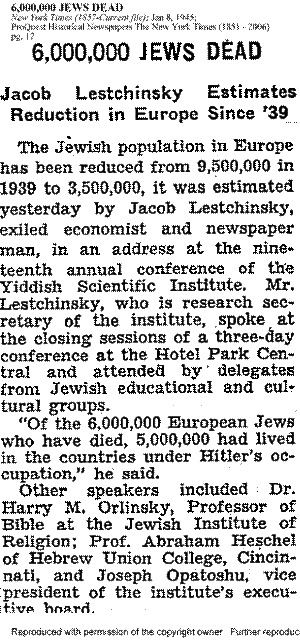 6,000,000 JEWS DEAD
New York Times (1857-Current file); Jan 8, 1945;
ProQuest Historical Newspapers The New York Times (1851 - 2006)
pg. 17
6,000,000 JEWS DEAD
Jacob Lestchinsky Estimates
Reduction in Europe Since '39
The Jewish population in Europe
has been reduced from 9,500,000 in
1939 to 3,500,000, it was estimated
yesterday by Jacob Lestchinsky,
exiled economist and newspaper
man, in an address at the nine-
teenth annual conference of the
Yiddish Scientific Institute. Mr.
Lestchinsky, who is research sec-
retary of the institute, spoke at
the closing sessions of a three-day
conference at the Hotel Park Cen-
tral and attended by delegates
from Jewish educational and cul-
tural groups.
"Of the 6,000,000 European Jews
who have died, 5,000,000 had lived
in the countries under Hitler's oc-
cupation," he said.
Other speakers included Dr.
Harry M. Orlinsky, Professor of
Bible at the Jewish Institute of
Religion; Prof. Abraham Heschel
of Hebrew Union College, Cincin-
nati, and Joseph Opatoshu, vice
president of the institute's execu-
tive board.
Reproduced with permission of the copyright owner Further reproduc